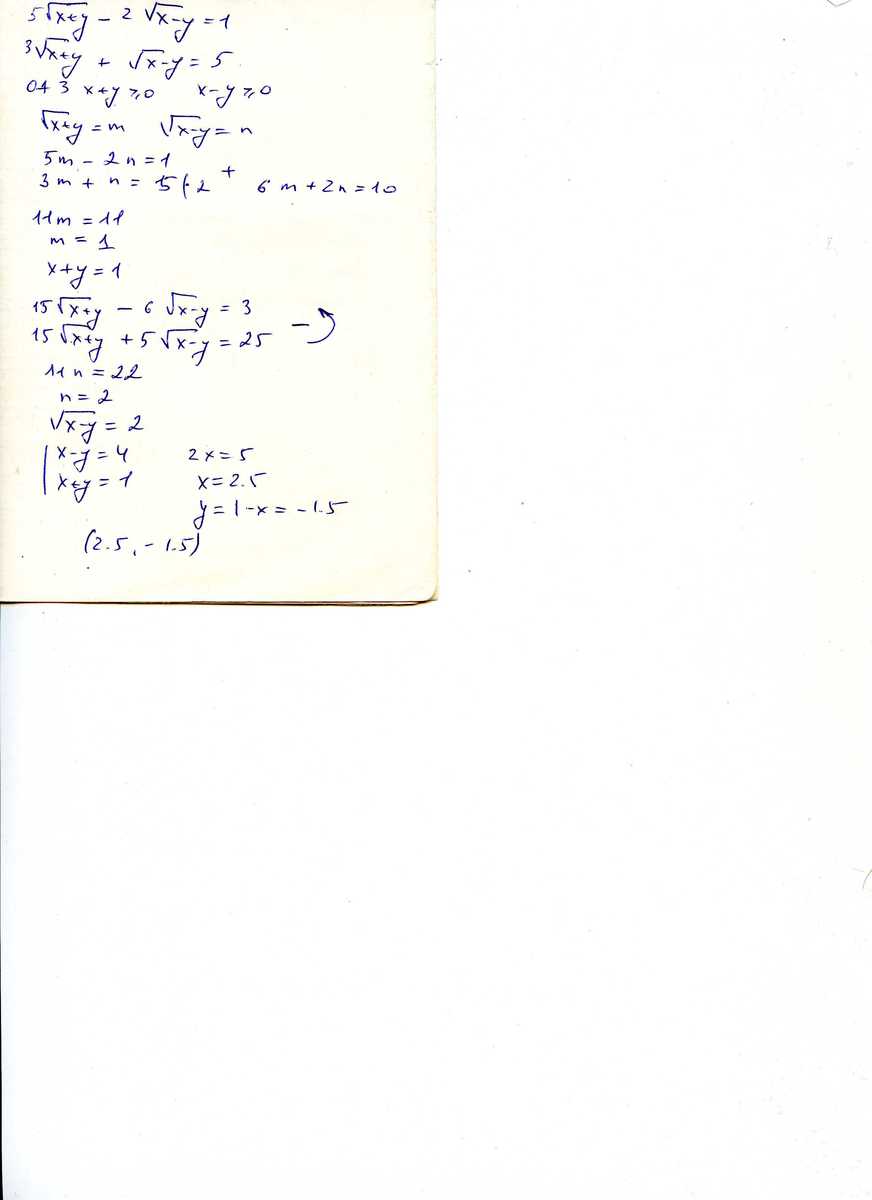 5√x+y - 2 √x-y = 1
3√x+y + √x-y = 5
ОДЗ x+y ≥ 0 x-y ≥ 0
√x+y = m √x-y = n
5m - 2n = 1
3m + n = 5 |·2 + 6m + 2n = 10
11m = 11
m = 1
x+y = 1
15√x+y - 6√x-y = 3
15√x+y + 5√x-y = 25 -
11n = 22
n = 2
√x-y = 2
x-y = 4 2x = 5
x+y = 1 x = 2.5
y = 1-x = -1.5
(2.5, -1.5)